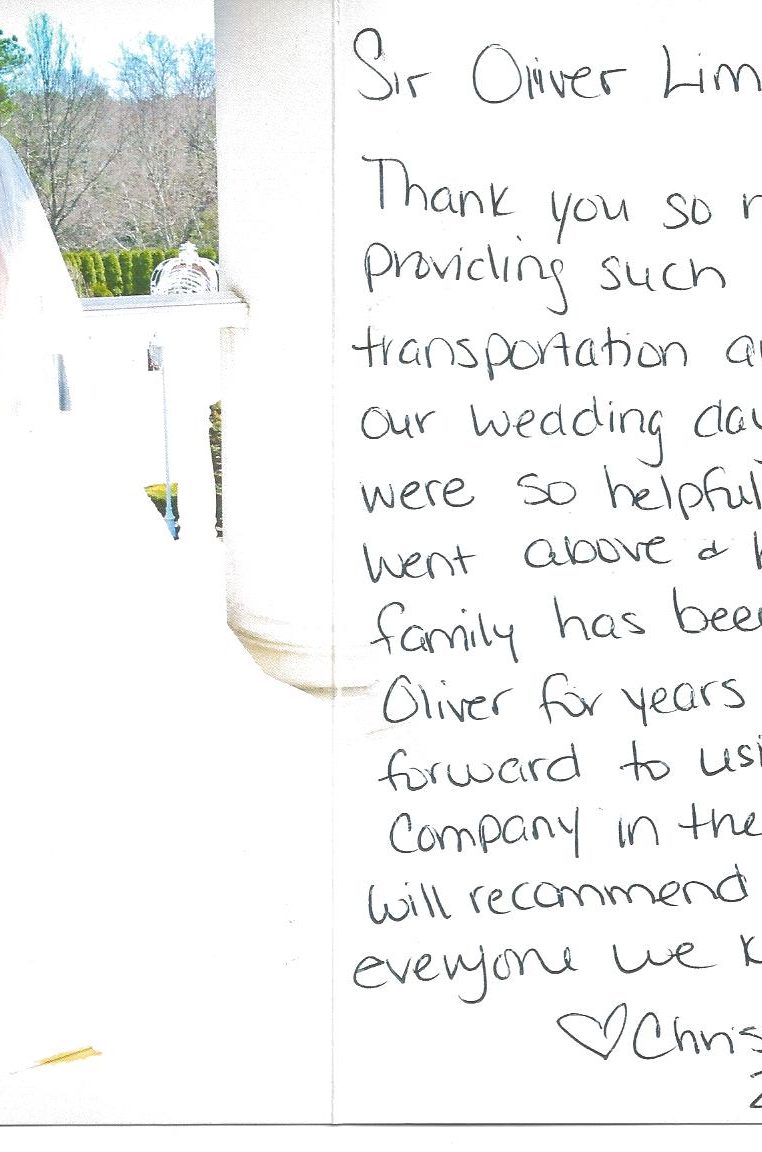 Sir Oliver Lim
Thank you so
providing such
transportation a
our wedding day
were so helpful
went above &
family has been
Oliver for years
forward to usi
company in the
will recommend
everyone we k
♡ Chris
2